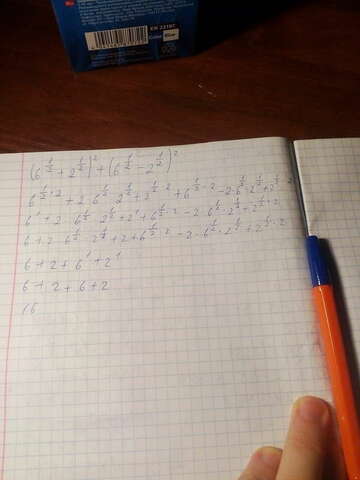 EN 22197
Color Blue
(6^{1/2} + 2^{1/2})^2 + (6^{1/2} - 2^{1/2})^2
6^{1/2 · 2} + 2 · 6^{1/2} · 2^{1/2} + 2^{1/2 · 2} + 6^{1/2 · 2} - 2 · 6^{1/2} · 2^{1/2} + 2^{1/2 · 2}
6^1 + 2 · 6^{1/2} · 2^{1/2} + 2^1 + 6^{1/2 · 2} - 2 · 6^{1/2} · 2^{1/2} + 2^{1/2 · 2}
6 + 2 · 6^{1/2} · 2^{1/2} + 2 + 6^{1/2 · 2} - 2 · 6^{1/2} · 2^{1/2} + 2^{1/2 · 2}
6 + 2 + 6^1 + 2^1
6 + 2 + 6 + 2
16